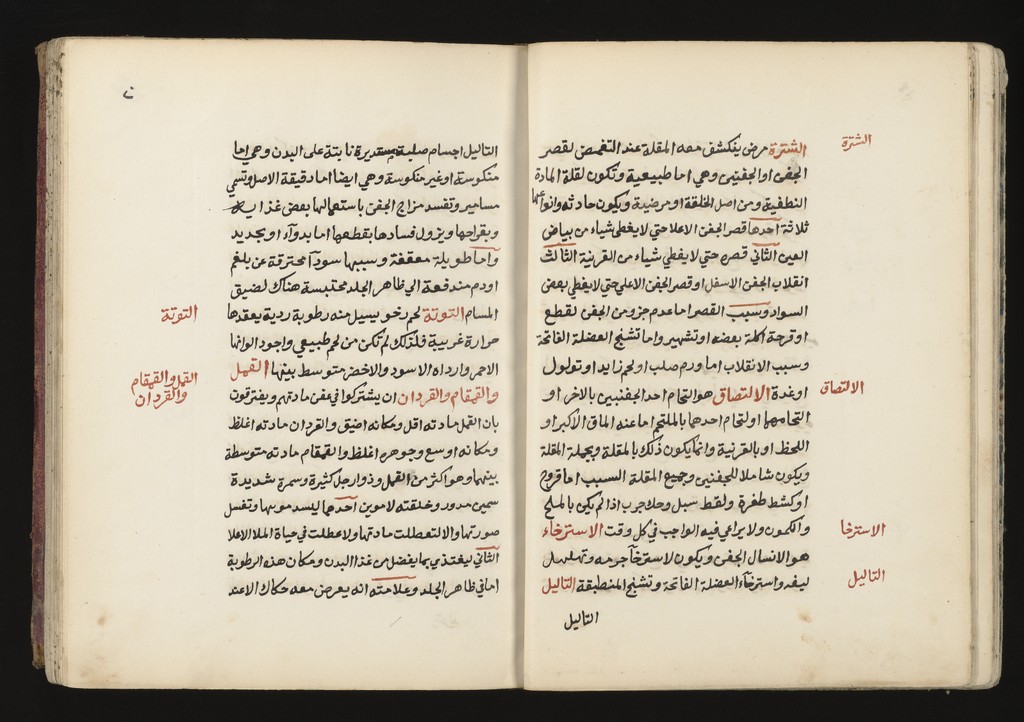 الشترة
الشترة مرض ينكشف معه المقلة عند التغمض لقصر
الجفن او الجفنين وهي اما طبيعية وتكون لقلة المادة
النطفية ومن اصل الخلقة او مرضية ويكون حادثه وانواعها
ثلاثة احدها قصر الجفن الاعلا حتي لا يغطي شياء من بياض
العين الثاني قصره حتي لا يغطي شياء من القرنية الثالث
انقلاب الجفن الاسفل او قصر الجفن الاعلي حتي لا يغطي بعض
السواد وسبب القصر اما عدم جزو من الجفن لقطع
او قرحة اكلة بعضه او تشمير واما تشنج العضلة الفاتحة
وسبب الانقلاب اما ورم صلب او لحم زايد او تولول
الالتصاق
او غدة الالتصاق هو التحام احد الجفنين بالاخر او
التحامهما او لتحام احدهما بالملتحم اما عند الماق الاكبر او
اللحظ او بالقرنية وانما يكون ذلك بالمقلة وبجملة المقلة
ويكون شاملا للجفنين وجميع المقلة السبب اما قروح
او كشط ظفرة ولقط سبل وحك جرب اذا لم يكن بالملح
الاسترخا
والكمون ولا يراعي فيه الواجب في كل وقت الاسترخاء
هو الانسال الجفن ويكون لاسترخآ جرمه وتهلهل
التاليل
ليفه واسترخآء العضلة الفاتحة وتشنج المنطبقة التاليل
التاليل
التاليل اجسام صلبة مستديرة نابتة على البدن وهي اما
منكوسة او غير منكوسة وهي ايضا اما دقيقة الاصل وتسمي
مسامير وتفسد مزاج الجفن باستعمالها بعض غذايه
وبقراحها ويزول فسادها بقطعها اما بدوآء او بحديد
واما طويلة معقفة وسببها سودآ محترقة عن بلغم
او دم مندفعة الي ظاهر الجلد محتبسة هناك لضيق
التوتة
المسام التوتة لحم رخو يسيل منه رطوبة ردية يعقدها
حرارة غريبة فلذلك لم تكن من لحم طبيعي واجود الوانها
الاحمر وارداه الاسود والاخضر متوسط بينها القمل
القمل والقمقام
والقردان
والقمقام والقردان ان يشتركوا في عفن مادتهم ويفترقون
بان القمل مادته اقل ومكانه اضيق والقردان مادته اغلظ
ومكانه اوسع وجوهره اغلظ والقمقام مادته متوسطة
بينهما وهو اكثر من القمل وذو ارجل كثيرة وسمرة شديدة
سمين مدور وخلقته لامرين احدهما ليسد موتها وتفسل
صورتها والا لتعطلت مادتها ولا عطلت في حياة الملا الاعلا
الثاني ليغتذي بما يفضل من غذا البدن ومكان هذه الرطوبة
اما في ظاهر الجلد وعلامته انه يعرض معه حكاك الا عند